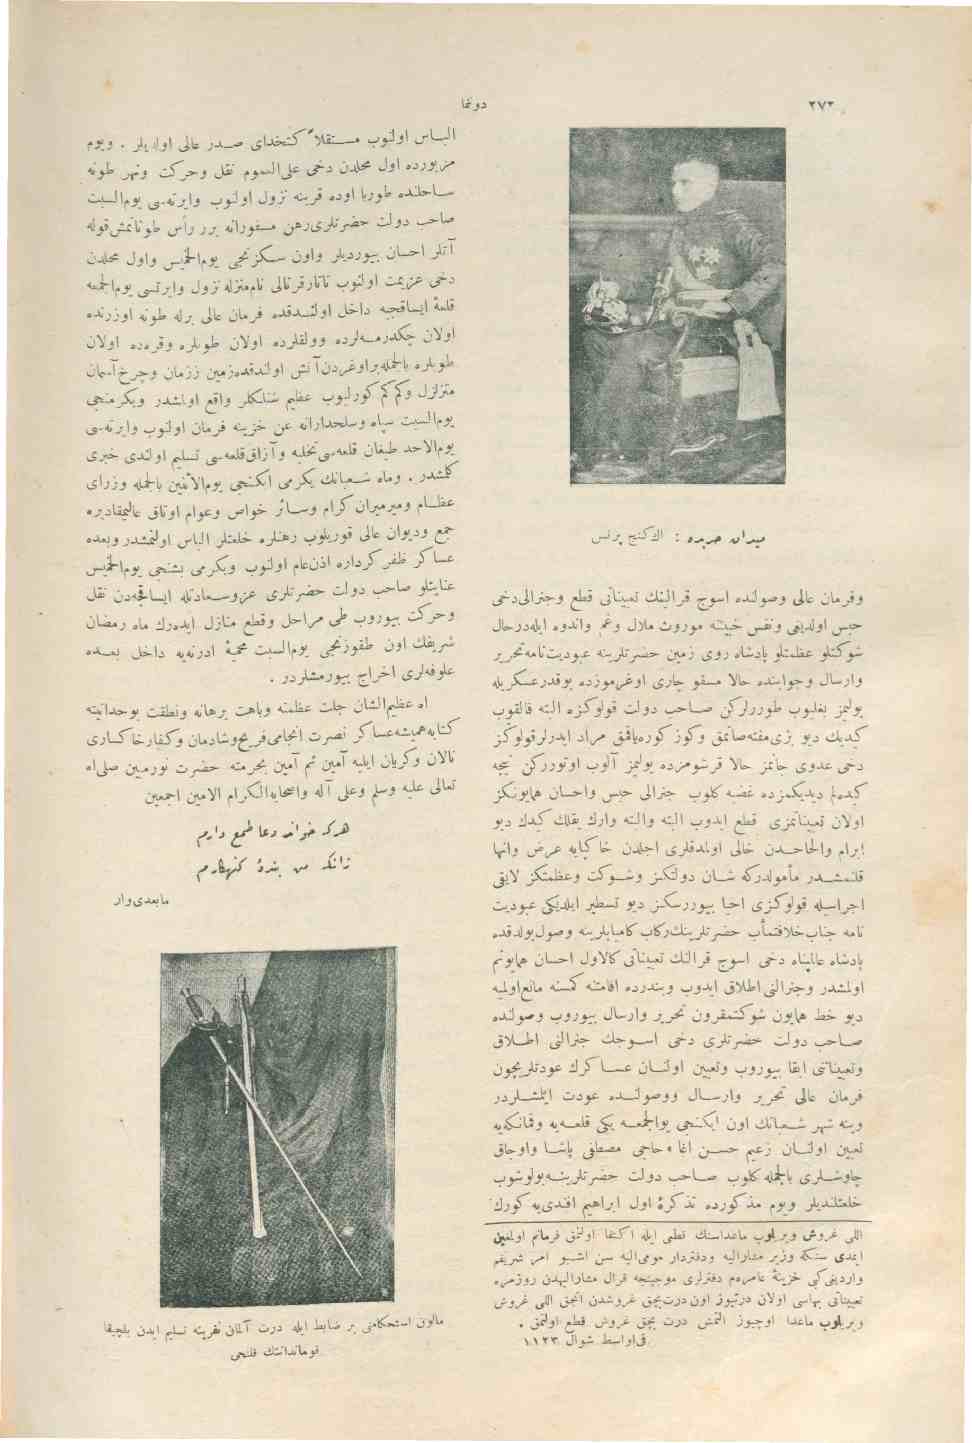 ٢٧٢
دونما
میدان حربده : اك كنج پرنس
وفرمان عالی وصولنده اسوج قرالینك تعییناتی قطع وجنرالی دخی
حبس اولدیغی ونفس خبیثنه موروث ملال وغم واندوه ایله درحال
شوكتلو عظمتلو پادشاه روی زمین حضرتلرینه عبودیتنامه تحریر
وارسال وجوابنده حالا مسقو چاری اوغرموزده بوقدر عسكریله
یولیمز بغلیوب طوررلركن صاحب دولت قولوكزه البته قالقوب
كیدیك دیو بزی مفته صاتمق وكوز كوره یاقمق مراد ایدرلر قولوكز
دخی عدوی جانمز حالا قرشومزده یولیمز آلوب اوتورركن نیجه
كیدهلم دیدیكمزده غضبه كلوب جنرالی حبس واحسان همایونكز
اولان تعییناتمزی قطع ایدوب البته والبته وارك یقلك كیدك دیو
ابرام والحاحدن خالی اولمدقلری اجلدن خاكپایه عرض وانها
قلنمشدر مأمولدركه شان دولتكز وشوكت وعظمتكز لایقی
اجراسیله قولوكزی احیا بیوررسكز دیو تسطیر ایلدیكی عبودیت
نامه جناب خلافتمآب حضرتلرینك ركاب كامیابلرینه وصول بولدقده
پادشاه عالمپناه دخی اسوج قرالنك تعییناتی كالاول احسان همایونم
اولمشدر وجنرالنی اطلاق ایدوب وبندرده اقامتنه كمسنه مانع اولمیه
دیو خط همایون شوكتمقرون تحریر وارسال بیوروب وصولنده
صاحب دولت حضرتلری دخی اسوجك جنرالنی اطلاق
وتعییناتنی ابقا بیوروب وتعیین اولنان عساكرك عودتلریچون
فرمان عالی تحریر وارسال ووصولنده عودت ایتمشلردر
وینه شهر شعبانك اون ایكنجی یوم الجمعه یكی قلعهیه وتمانكهیه
تعیین اولنان زعیم حسن اغا و حاجی مصطفی پاشا واوجاق
چاوشلری بالجمله كلوب صاحب دولت حضرتلرینه بولوشوب
خلعتلندیلر ویوم مذكورده تذكرهٔ اول ابراهیم افندی یه كورك
اللی غروش ویریلوب ماعداسنك قطعی ایله اكتفا اولنمق فرمانم اولمغین
ایمدی سنكه وزیر مشارالیه ودفتردار مومی الیه سن اشبو امر شریفم
واردیغی كبی خزینهٔ عامرهم دفترلری موجبنجه قرال مشارالیهدن روزمره
تعییناتی بهاسی اولان درتیوز اون درت بچق غروشدن انجق اللی غروش
ویریلوب ماعدا اوچیوز التمش درت بچق غروش قطع اولنمق .
فی اواسط شوال ١١٢٣
الباس اولنوب مستقلاً كتخدای صدر عالی اولدیلر . ویوم
مزبورده اول محلدن دخی علی العموم نقل وحركت ونهر طونه
ساحلنده طوربا اوده قربنه نزول اولنوب وایرتهسی یوم السبت
صاحب دولت حضرتلری رهن مسفورانه برر رأس طوناتمش قوله
آتلر احسان بیوردیلر واون سكزنجی یوم الخمیس واول محلدن
دخی عزیمت اولنوب تاتار قرتالی نام منزله نزول وایرتسی یوم الجمعه
قلعهٔ ایساقجیه داخل اولندقده فرمان عالی برله طونه اوزرنده
اولان چكدرمهلرده وولقلرده اولان طوبلره وقرهده اولان
طوبلره بالجمله بر اوغردن آتش اولندقده زمین و زمان وچرخ آسمان
متزلزل وكم كم كورلیوب عظیم شنلكلر واقع اولمشدر ویكرمنجی
یوم السبت سپاه وسلحدارانه عن خزینه فرمان اولنوب وایرتهسی
یوم الاحد طیغان قلعهسی تخلیه وآزاق قلعهسی تسلیم اولندی خبری
كلمشدر . وماه شعبانك یكرمی ایكنجی یوم الاثنین بالجمله وزرای
عظام ومیرمیران كرام وسائر خواص وعوام اوتاق عالیمقادیره
جمع ودیوان عالی قوریلوب رهنلره خلعتلر الباس اولنمشدر وبعده
عساكر ظفركرداره اذن عام اولنوب ویكرمی بشنجی یوم الخمیس
عنایتلو صاحب دولت حضرتلری عز وسعادتله ایساقچهدن نقل
وحركت بیوروب طی مراحل وقطع منازل ایدهرك ماه رمضان
شریفك اون طقوزنجی یوم السبت محمیهٔ ادرنهیه داخل بعده
علوفهلری اخراج بیورمشلردر .
اه عظیم الشان جلت عظمته وباهت برهانه ونطقت بوحدانیته
كتابه همیشه عساكر نصرت انجامی فریح وشادمان وكفار خاكساری
نالان وكریان ایلیه آمین ثم آمین بحرمته حضرت نور مبین صلی اه
تعالی علیه وسلم وعلی آله واصحابه الكرام الامین اجمعین
هركه خواند دعا طمع دارم
زانكه من بندهٔ كنهكارم
مابعدی وار
مالون استحكامنی بر ضابط ایله درت آلمان نفرینه تسلیم ایدن بلچیقا
قومانداننك قلنجی